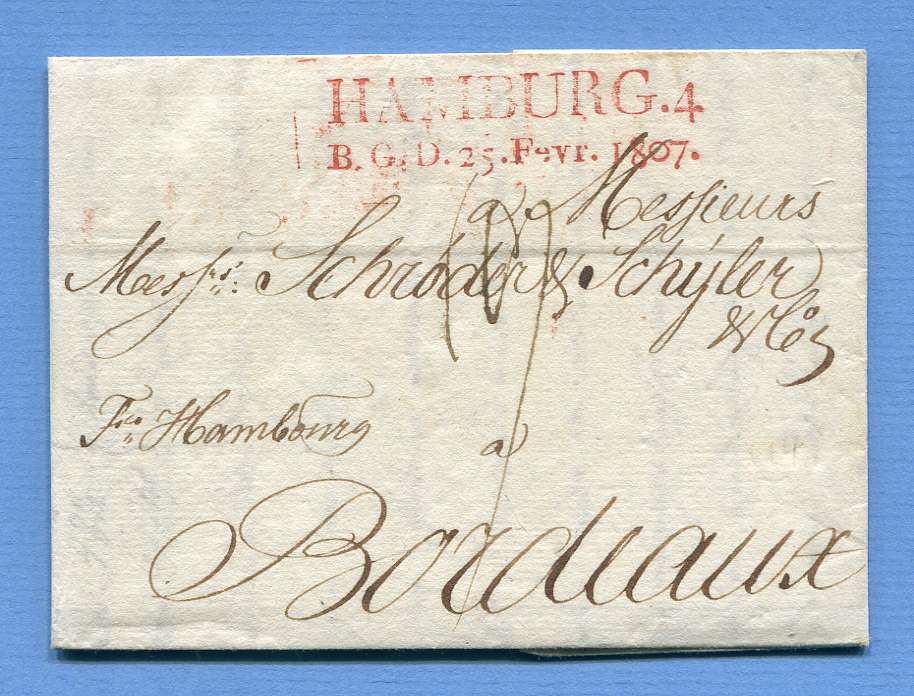 HAMBURG.4.
B. G. D. 25. Fevr. 1807.
a Messieurs
Messrs. Schröder & Schÿler
& Co
Fco Hambourg
a
Bordeaux